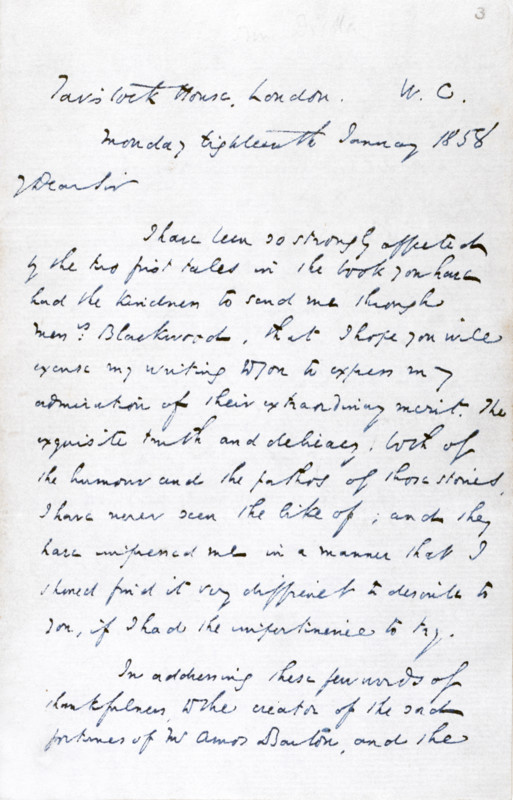 3
Tavistock House, London. W. C.
Monday Eighteenth January 1858
My Dear Sir
I have been so strongly affected
by the two first tales in the book you have
had the kindness to send me through
Messrs. Blackwood, that I hope you will
excuse my writing to you to express my
admiration of their extraordinary merit. The
exquisite truth and delicacy, both of
the humour and the pathos of those stories,
I have never seen the like of; and they
have impressed me in a manner that I
should find it very difficult to describe to
you, if I had the impertinence to try.
In addressing these few words of
thankfulness, to the creator of the sad
fortunes of Mr. Amos Barton, and the